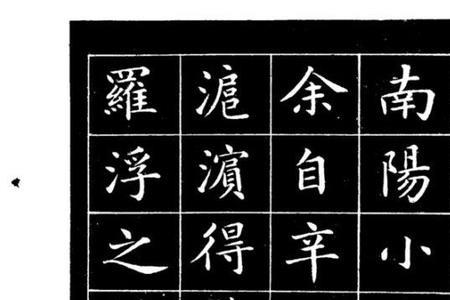 南陽小
余自辛
滬濵得
羅浮之